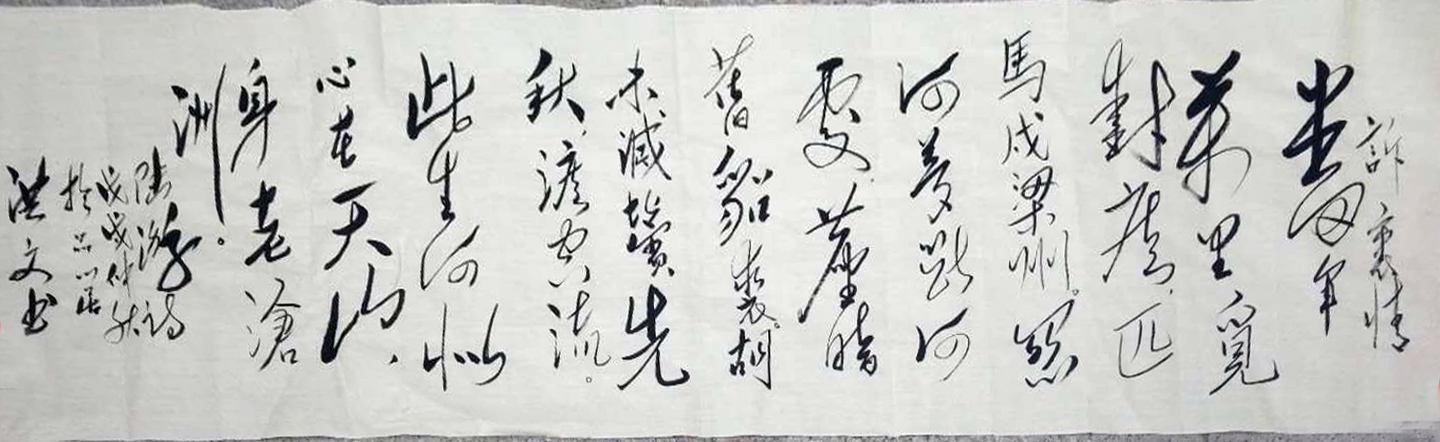 訴衷情
當年
萬里覓
封侯匹
馬戍梁州。關
河夢斷何
處塵暗
舊貂裘。胡
未滅鬢先
秋，淚空流。
此生何似
心在天山，
身老滄
洲。
陸游詞
戊戌仲秋
於品居
洪文书